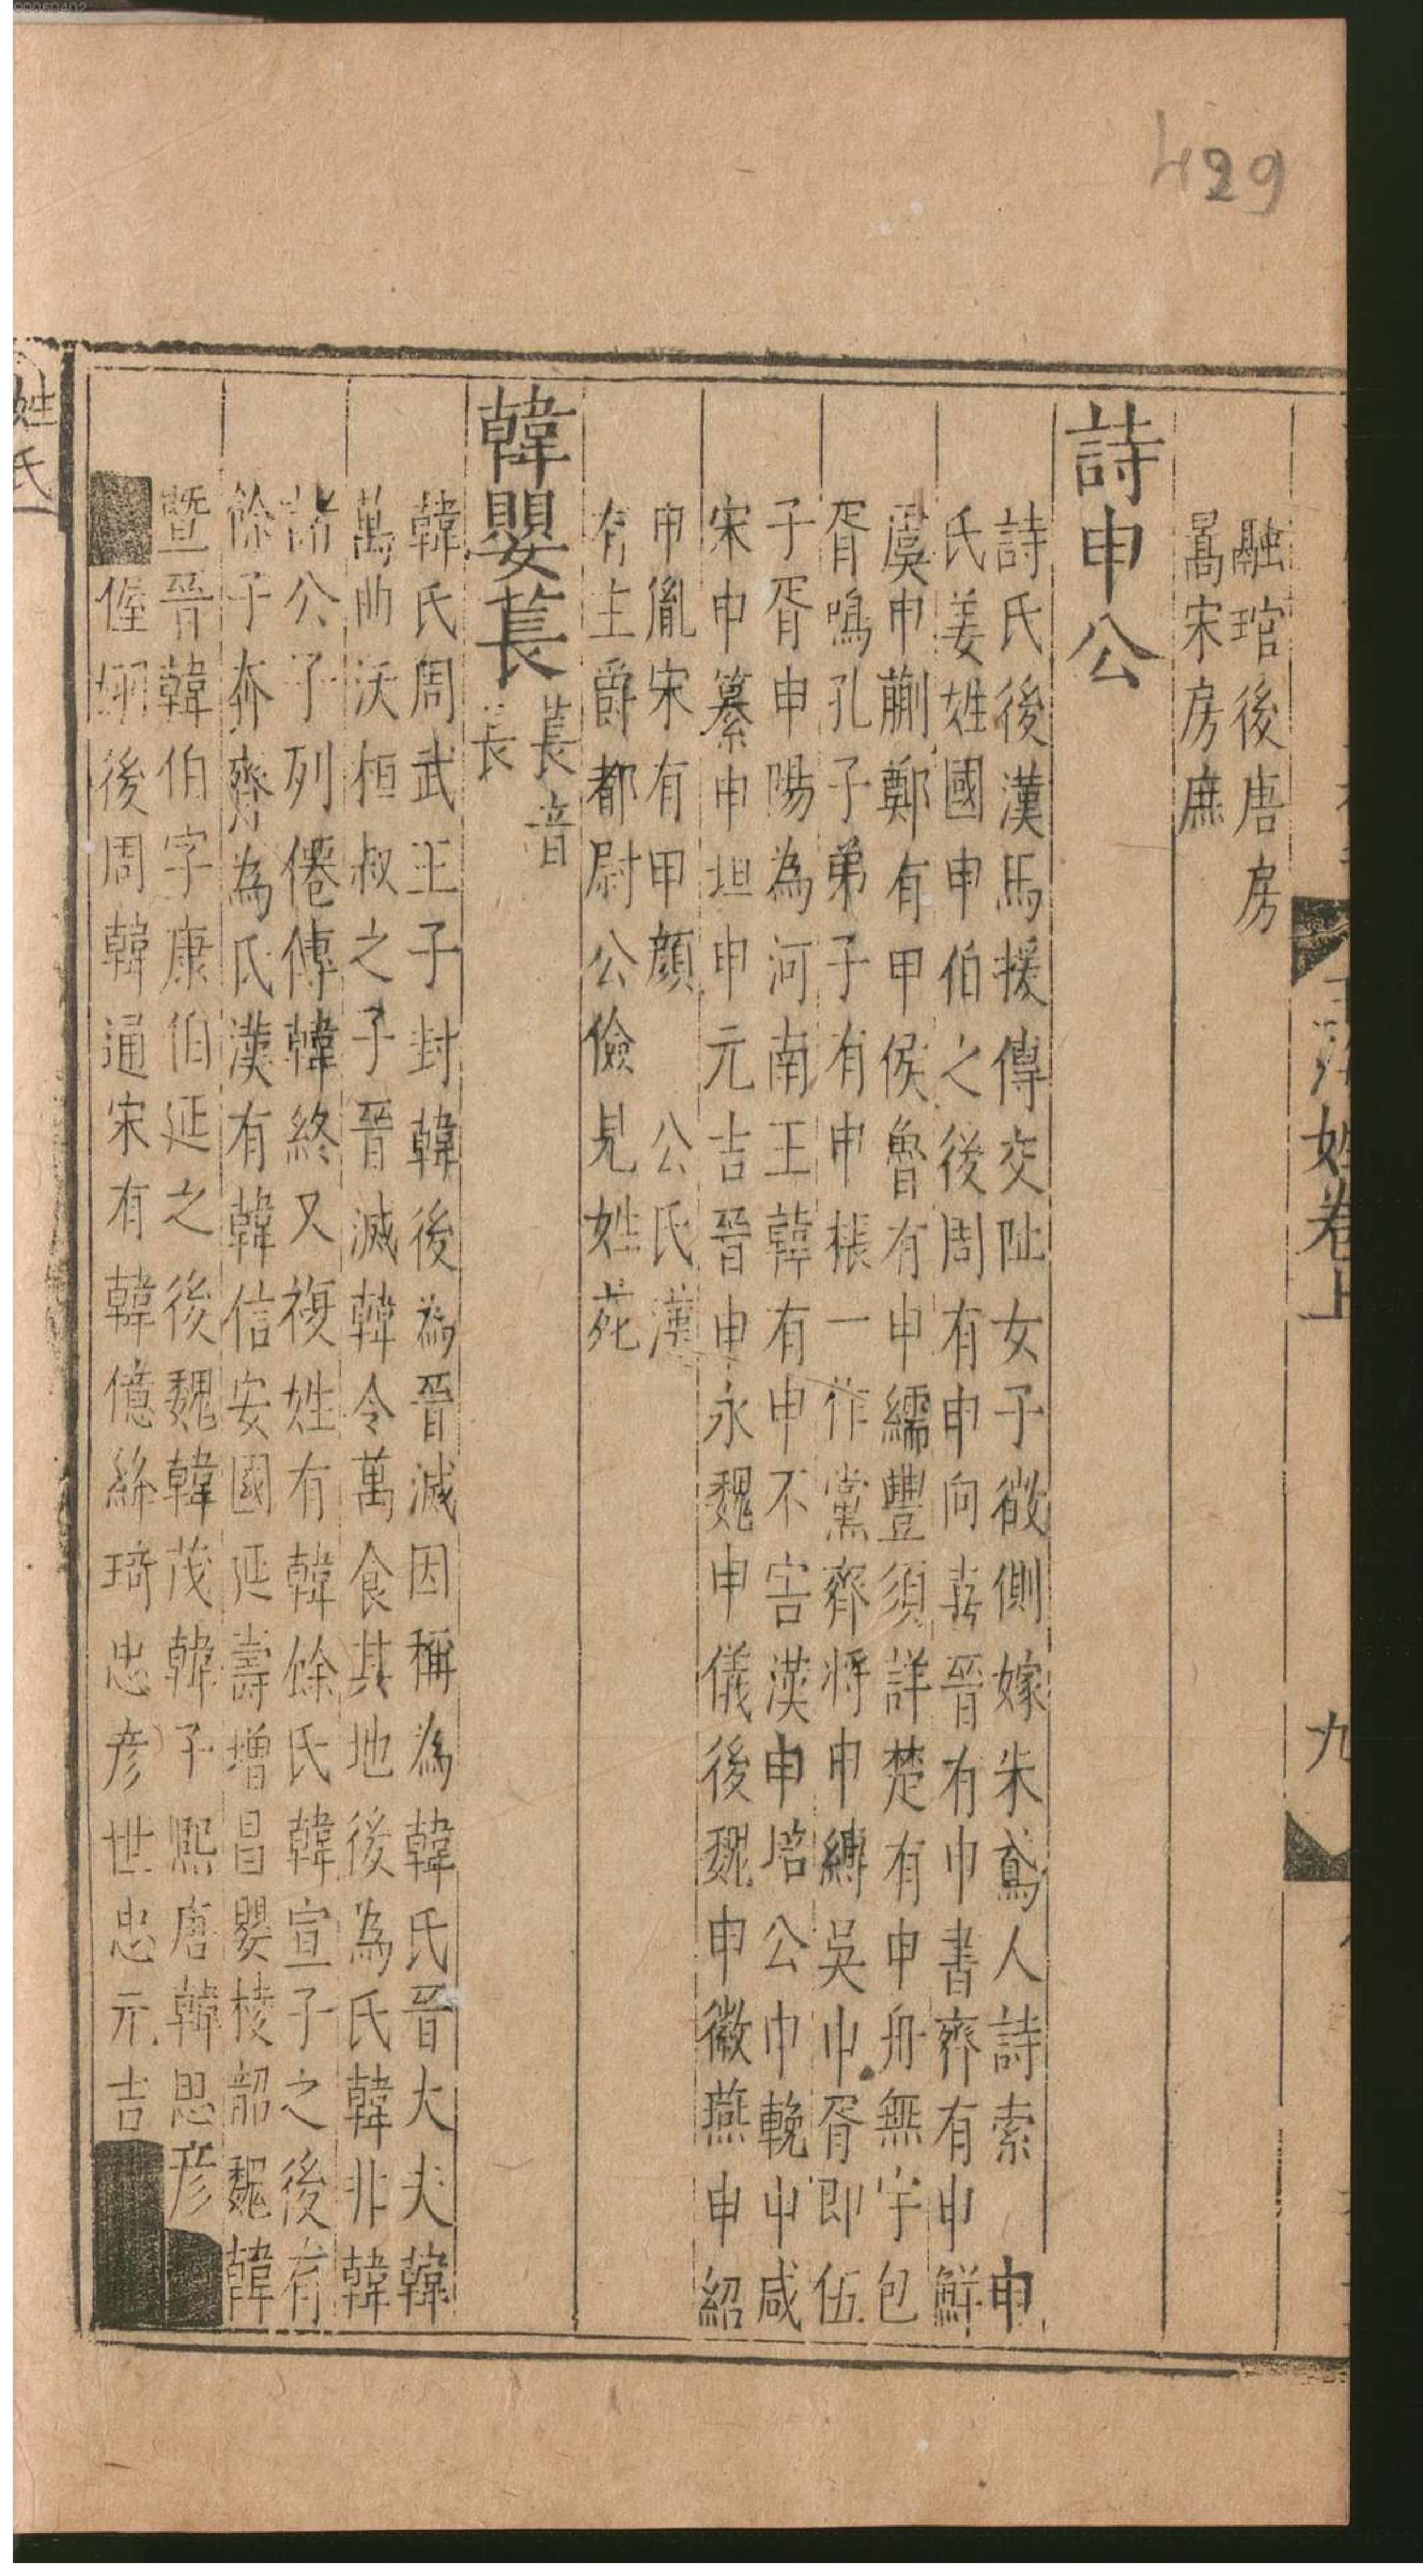 99060402
429
姓氏
姓卷上
九
融琯後唐房
暠宋房庶
詩申公
詩氏後漢馬援傳交阯女子徵側嫁朱鳶人詩索　申
氏姜姓國申伯之後周有申向喜晉有巾書齊有申鮮
虞申蒯鄭有甲侯魯有申繻豐須詳楚有申舟無宇包
胥鳴孔子弟子有申棖一作黨齊將申縛吳巾胥即伍
子胥申申陽為河南王韓有申不害漢申申培公巾巾輓巾咸
宋申申纂申坦申元吉晉申永魏申儀後魏申徽燕申紹
申胤宋有甲顔　公氏漢
有主爵都尉公儉見姓苑
韓嬰萇
萇音
長
韓氏周武王子封韓後為晉滅因稱為韓氏晉大夫韓
萬曲沃桓叔之子晉滅韓令萬食其地後為氏韓非韓
諸公子列僊傳韓終又複姓有韓餘氏韓宣子之後有
餘子奔齊為氏漢有韓信安國延壽增昌嬰棱韶魏韓
暨晉韓伯字康伯延之後魏韓茂韓子熙唐韓思彦
後周韓通宋有韓億絲琦忠彦世忠元吉